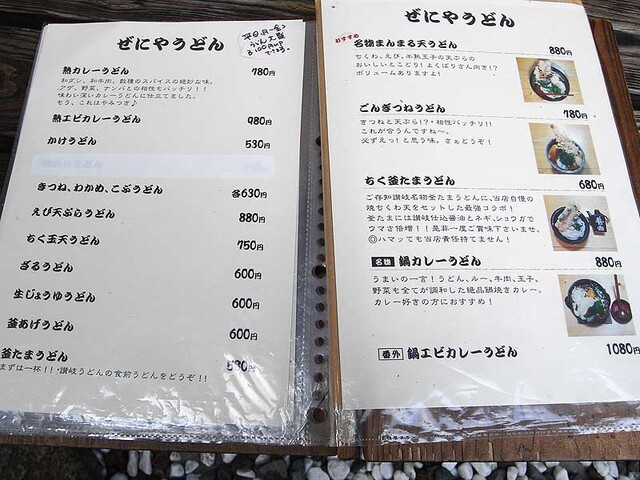 ぜにやうどん
熟カレーうどん 780円
和ダシ、和牛肉、数種のスパイスの絶妙な味。
アゲ、野菜、ナンバとの相性もバッチリ!!
味わい深いカレーうどんに仕立てました。
もう、これはやみつき♪
熟エビカレーうどん 980円
かけうどん 530円
きつね、わかめ、こぶうどん 各630円
えび天ぷらうどん 880円
ちく玉天うどん 750円
ざるうどん 600円
生じょうゆうどん 600円
釜あげうどん 600円
釜たまうどん
まずは一杯!!讃岐うどんの食前うどんをどうぞ!!
ぜにやうどん
おすすめ
名物まんまる天うどん 880円
ちくわ、えび、半熟玉子の天ぷらの
おいしいとこどり!よくばりさん向き!?
ボリュームありますよ!
ごんぎつねうどん 780円
きつねと天ぷら!?・相性バッチリ!!
これが合うんですね〜。
必ずえっ!と思う味。さぁどうぞ!
ちく釜たまうどん 680円
ご存知讃岐名物釜たまうどんに、当店自慢の
焼ちくわ天をセットした最強コラボ!
釜たまには讃岐仕込醤油とネギ、ショウガで
ウマさ倍増!!是非一度ご賞味下さいませ。
◎ハマッても当店責任持てません!
名物 鍋カレーうどん 880円
うまいの一言!うどん、ルー、牛肉、玉子、
野菜も全てが調和した絶品鍋焼きカレー。
カレー好きの方におすすめ!
番外 鍋エビカレーうどん 1080円